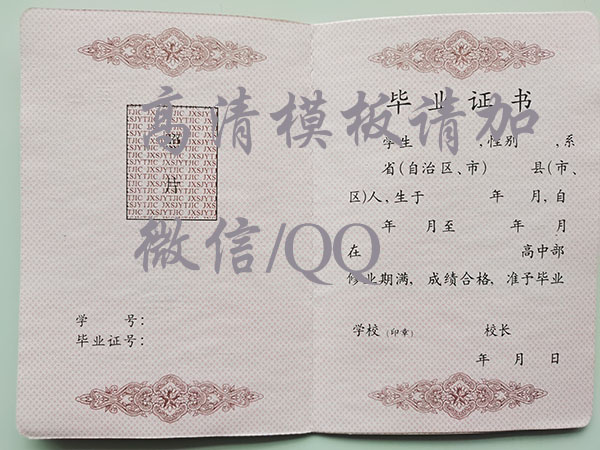 照
片
学 号：
毕业证号：
毕业证书
学生 ，性别 ，系
省(自治区、市) 县(市、
区)人，生于 年 月，自
年 月至 年 月
在 高中部
修业期满，成绩合格，准予毕业
学校（印章） 校长
年 月 日
高清模板请加
微信/QQ